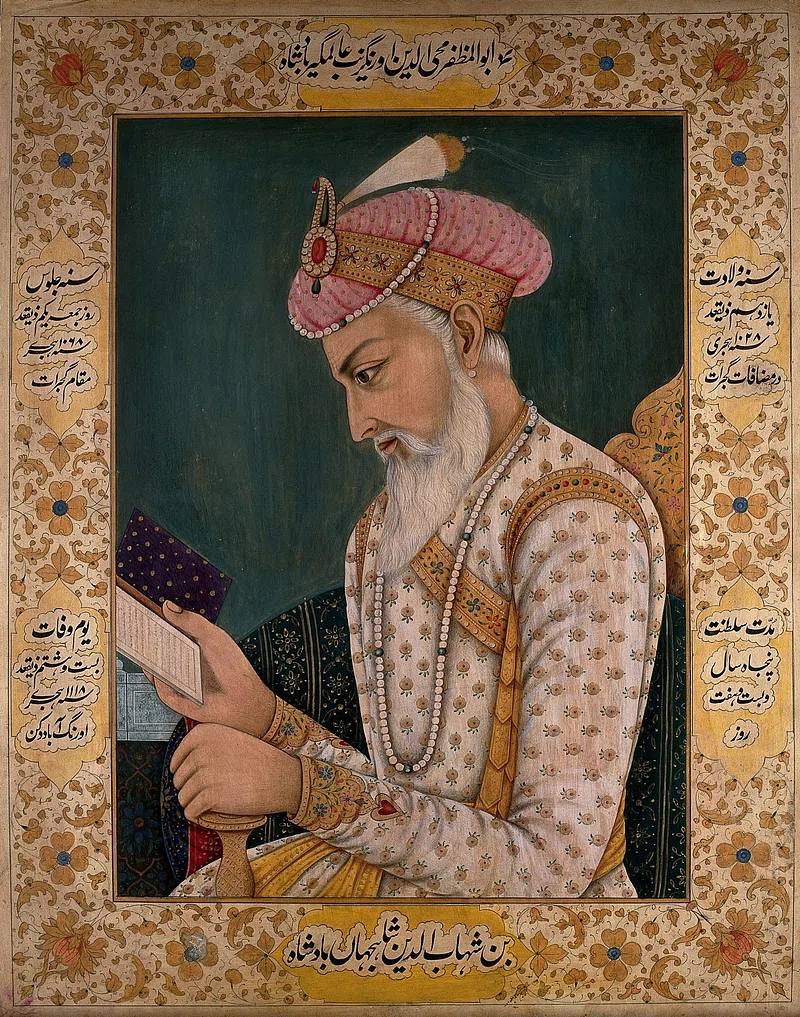 ابوالمظفر محی الدین اورنگزیب عالمگیر بادشاه
سنه ولادت
یازدهم ذیقعد
سنه ۱۰۲۸ هجری
در مضافات گجرات
سنه جلوس
روز جمعه یکم ذیقعد
سنه ۱۰۶۸ هجری
مقام گجرات
مدّت سلطنت
پنجاه سال
و بست و هفت
روز
یوم وفات
بست و هشتم ذیقعد
سنه ۱۱۱۸ هجری
اورنگ آباد دکن
بن شهاب الدین شاهجهان بادشاه